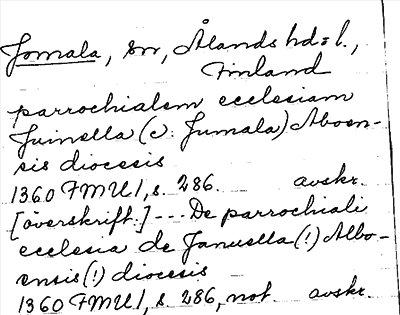 Jomala, sn, Ålands hd:l.,
Finland
parrochialem ecclesiam
Juinella (ɔ: Jumala) Aboen-
sis diocesis
1360 FMU 1, s. 286. avskr.
[överskrift:] --- De parrochiali
ecclesia de Januella (!) Albo-
ensis (!) diocesis
1360 FMU 1, s. 286, not. avskr.